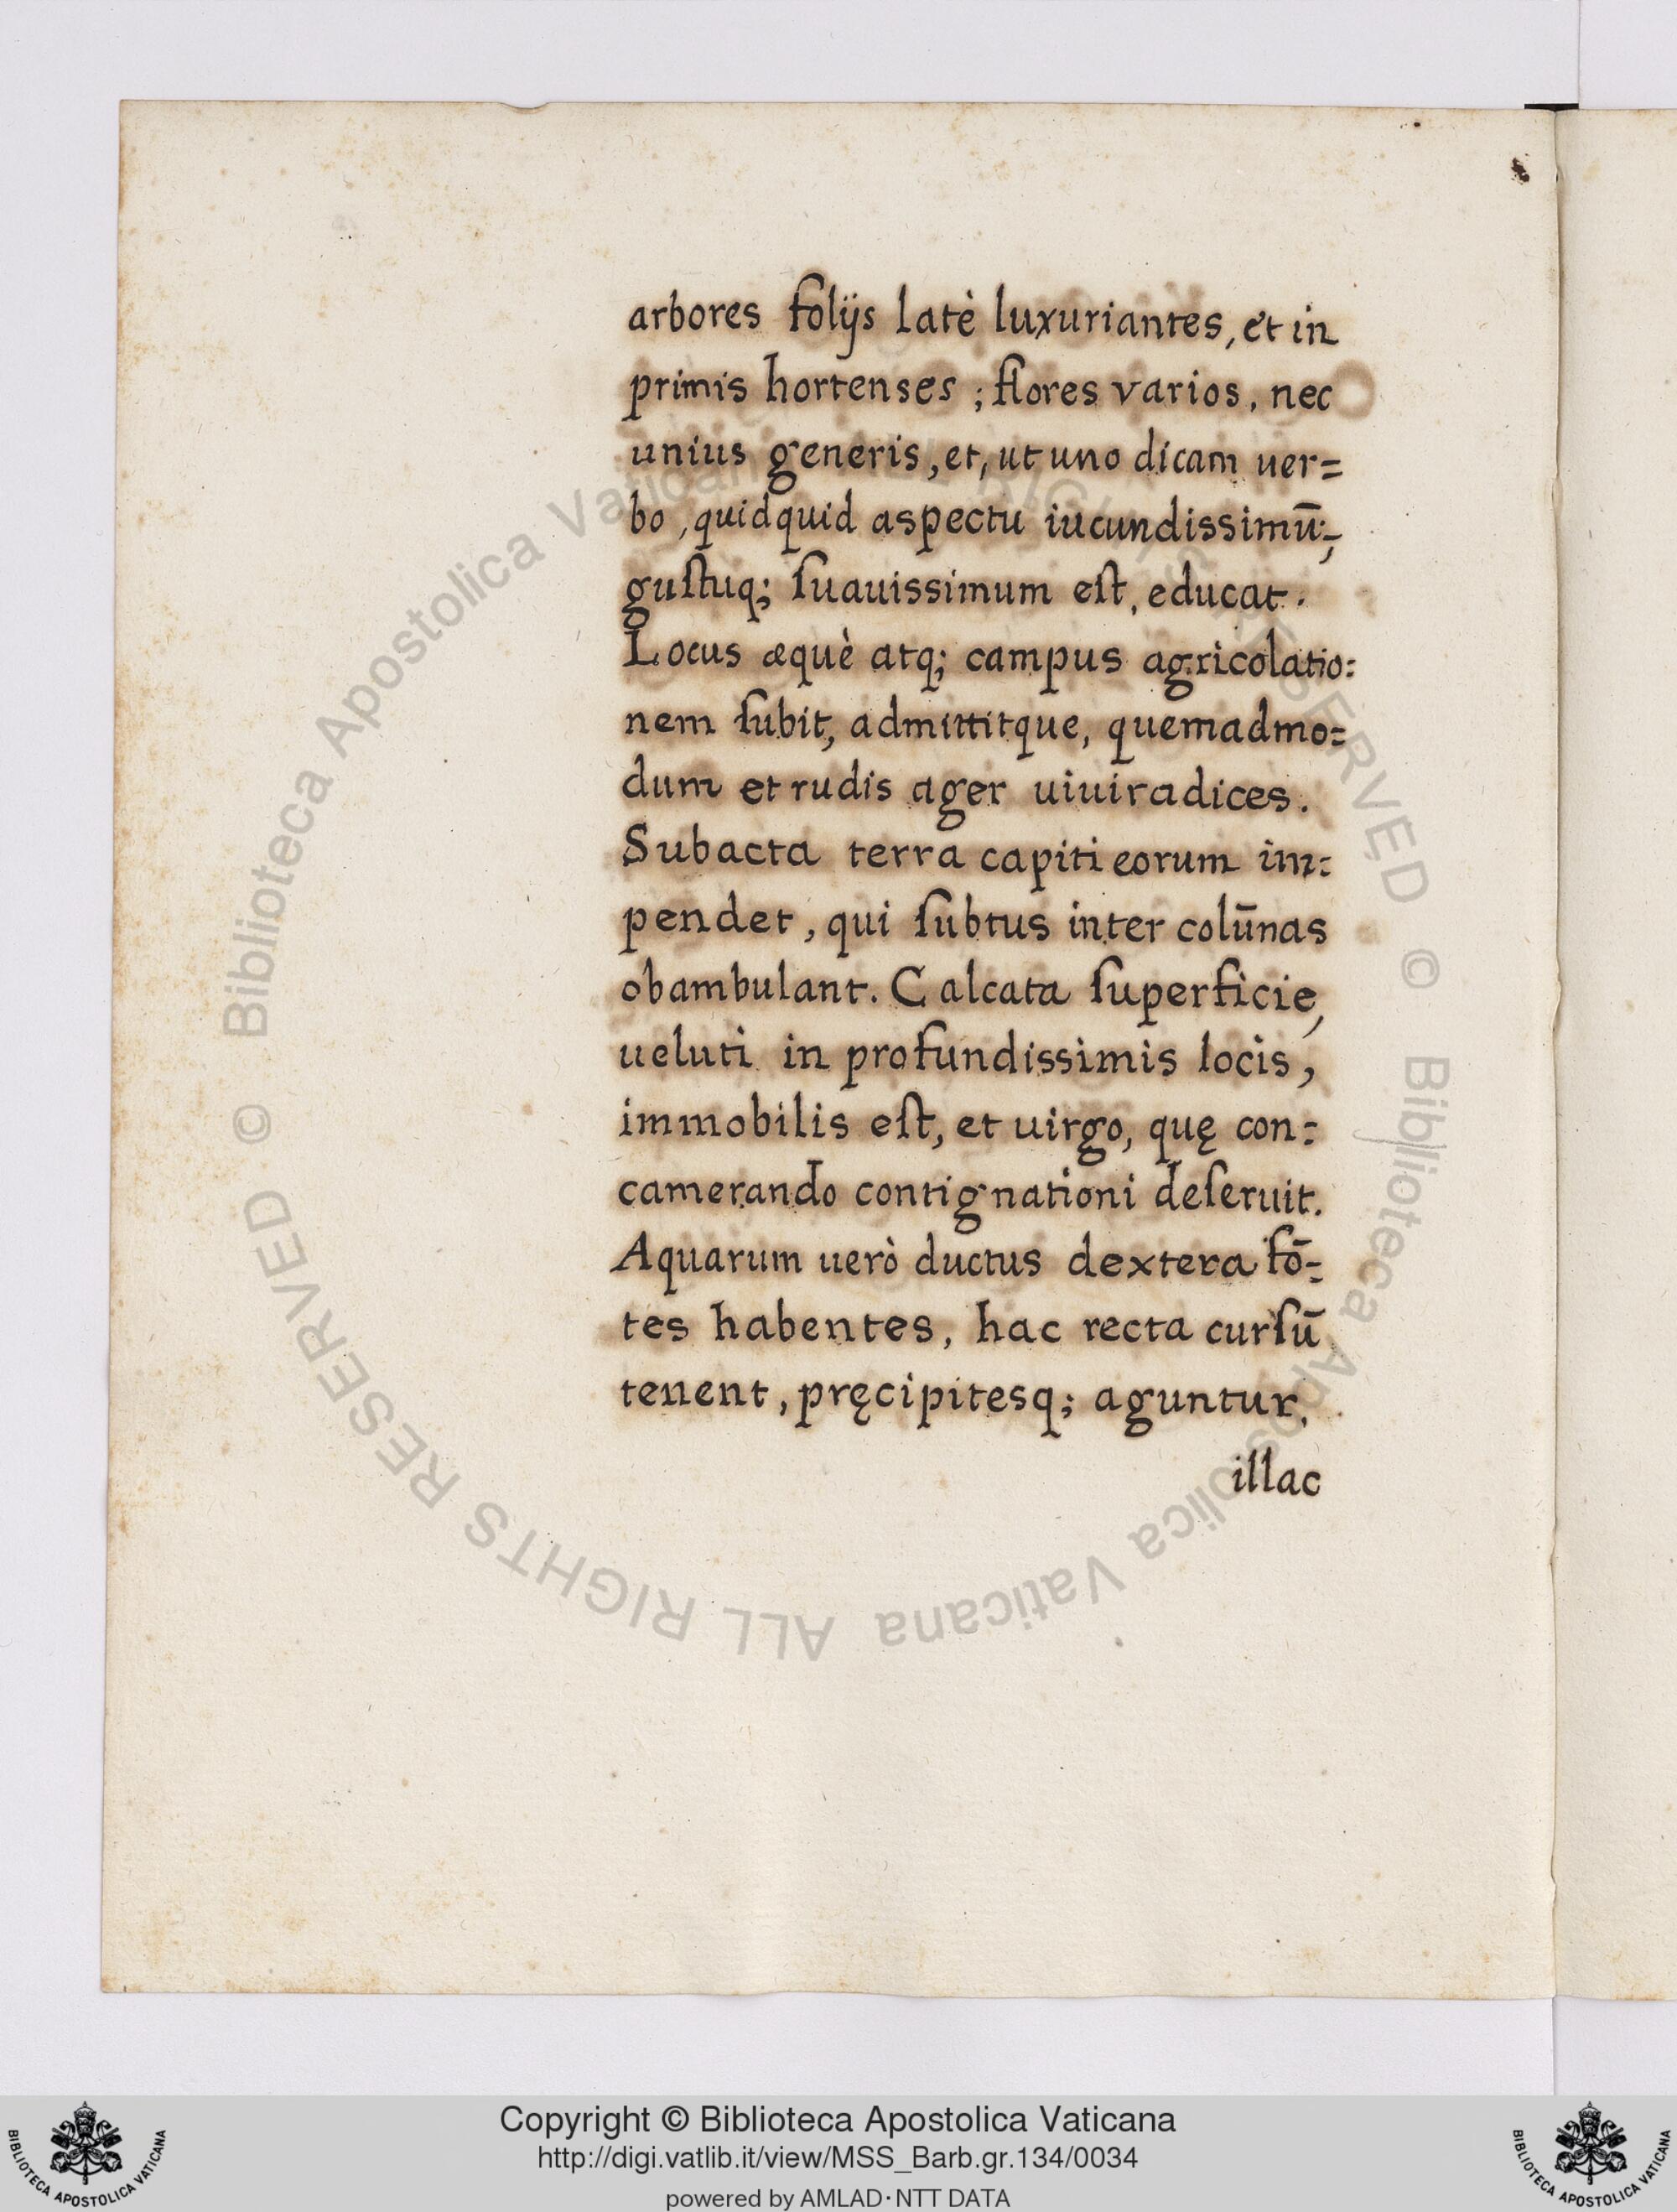 arbores folijs latè luxuriantes, et in
primis hortenses ; flores varios, nec
unius generis, et, ut uno dicam uer=
bo, quidquid aspectu iucundissimū,
guſtuq; ſuauissimum eſt, educat.
Locus æquè atq; campus agricolatio=
nem ſubit, admittitque, quemadmo=
dum et rudis ager uiuiradices.
Subacta terra capiti eorum im=
pendet, qui ſubtus inter colūnas
obambulant. Calcata ſuperficie,
ueluti in profundissimis locis,
immobilis eſt, et uirgo, quę con=
camerando contignationi deſeruit.
Aquarum uerò ductus dextera fō=
tes habentes, hac recta curſū
tenent, pręcipitesq; aguntur,
illac
© Biblioteca Apostolica Vaticana ALL RIGHTS RESERVED
© Biblioteca Apostolica Vaticana ALL RIGHTS RESERVED
Copyright © Biblioteca Apostolica Vaticana
http://digi.vatlib.it/view/MSS_Barb.gr.134/0034
powered by AMLAD·NTT DATA
BIBLIOTECA APOSTOLICA VATICANA
BIBLIOTECA APOSTOLICA VATICANA